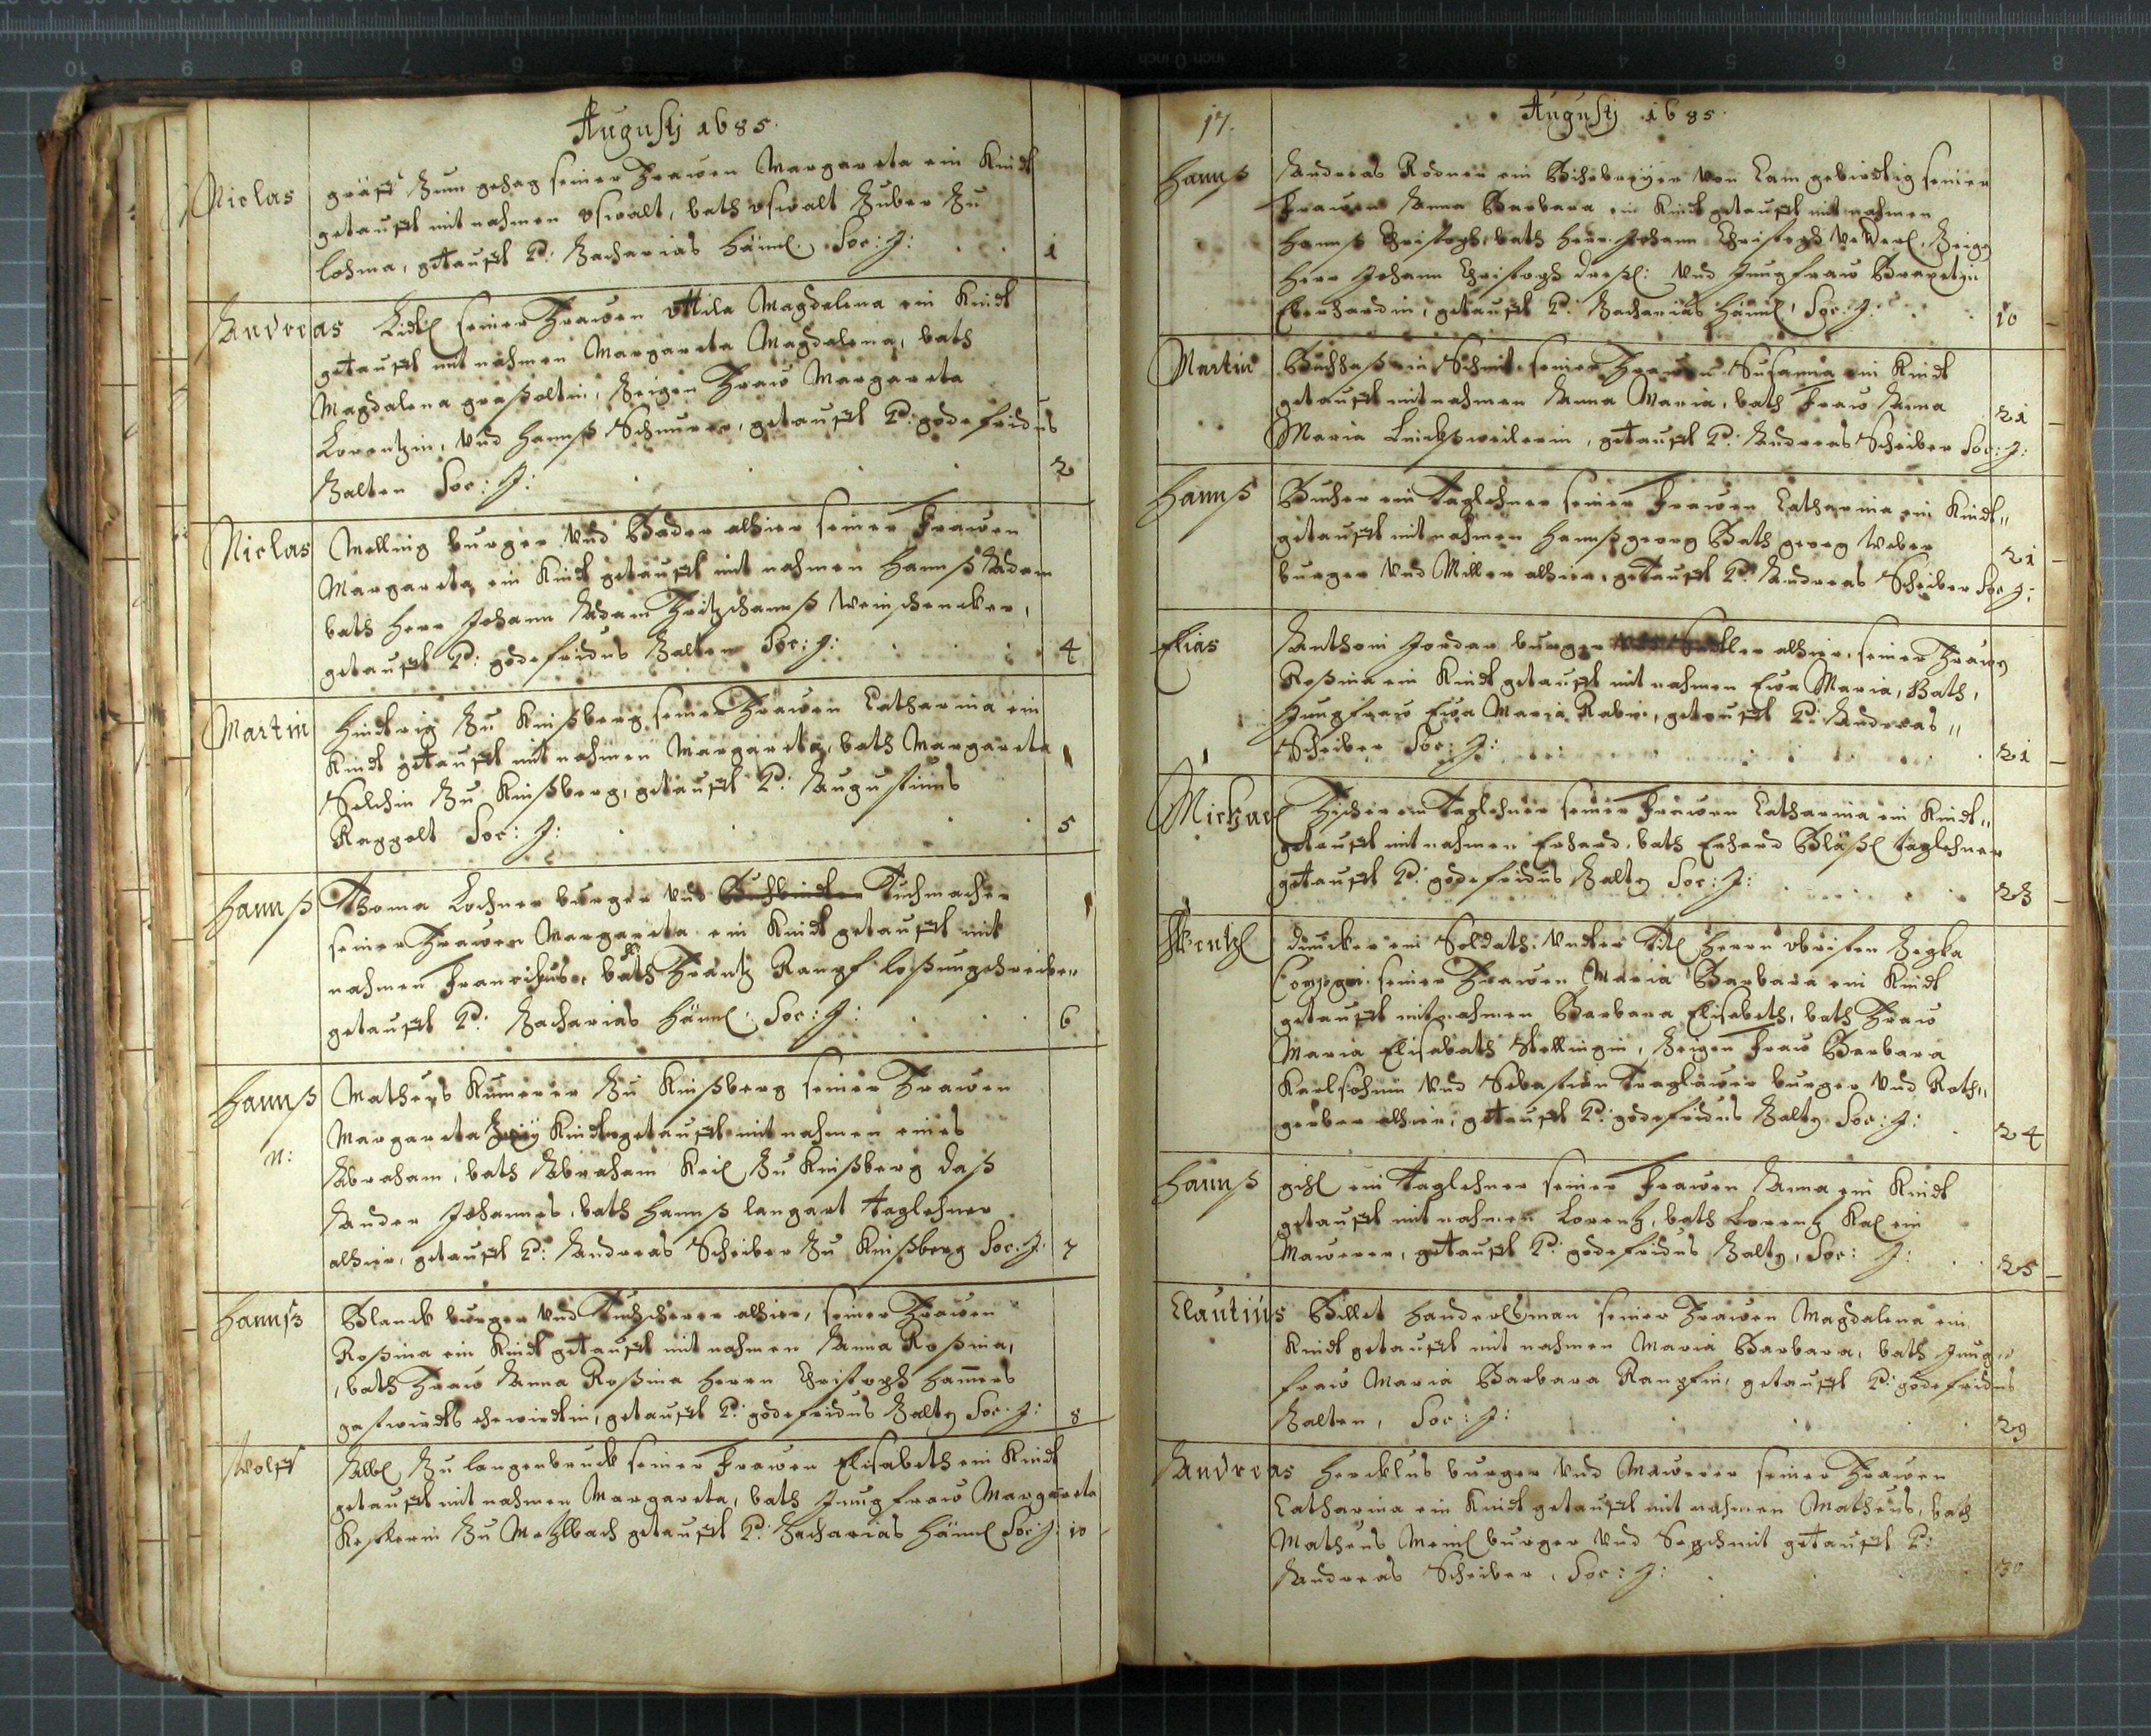 Augustj 1685.
Nicolas gräff Zum gehag seiner Frawen Margareta ein Kindt
getaufft mit nahmen oswalt, bath oswalt Zuber Zu
lohma, getaufft P: Zacharias Häml. Soc: J: 1
Andreas seiner Frawen ottila Magdalena ein Kindt
getaufft mit nahmen Margareta Magdalena, bath
Magdalena graßoltin, Zeigen Fraw Margareta
Lorentzin, Vnd Hannß Schnurer, getaufft P: godefridus
Balten Soc: J: 2
Niclas Melling burger Vnd Bader alhier seiner Frawen
Margareta ein Kindt getaufft mit nahmen Hannß Adam
bath Herr Johann Adam Fritzschanß Weinschencker,
getaufft P: godefridus Balten Soc: J: 4
Martin Hindtrig Zu Kinßberg seiner Frawen Catharina ein
Kindt getaufft mit nahmen Margareta, bath Margareta
Zu Kinßberg, getaufft P: Augustinus
Raggolt Soc: J: 5
Hannß Thoma Lochner burger Vnd Buchbinder Tuchmacher
seiner Frawen Margareta ein Kindt getaufft mit
nahmen Francikus, bath Frantz Rampf loßungschreiber
getaufft P: Zacharias Häml: Soc: J: 6
Hannß Matheus Kumerer Zu Kinßberg seiner Frawen
Margareta Zweÿ Kindter getaufft mit nahmen eines
n: Abraham, bath Abraham Keil Zu Kinßberg daß
Ander Johannes, bath Hannß langart taglehner
alhier, getaufft P: Andreas Schriber Zu Kinßberg Soc: J: 7
Hannß Blanck burger Vnd Tuchscherer alhier, seiner Frawen
Roßina ein Kindt getaufft mit nahmen Anna Roßina,
, bath Fraw Anna Roßina Herrn Christoph Hamers
gastwirdts ehewirdtin, getaufft P: godefridus Balty Soc: J: 8
Wolff Albl Zu langenbruck seiner Frawen Elisabeth ein Kindt
getaufft mit nahmen Margareta, bath Jungfraw Margareta
Zu Mehlbach getaufft P: Zacharias Häml Soc: J: 10
17. Augustj 1685.
Hannß Andreas Rödner ein Von Cam gebirdtig seiner
Frawen Anna Barbara ein Kindt getaufft mit nahmen
Hannß Christoph, bath Herr Johann Christoph Zeigen
Herr Johann Christoph Vnd Jungfraw
Eberhardin, getaufft P: Zacharias Häml, Soc: J: 10
Martin ein Schmit seiner Frawen Susanna ein Kindt
getaufft mit nahmen Anna Maria, bath Fraw Anna 21
Maria, getaufft P: Andreas Schriber Soc: J:
Hannß Bucher ein Taglehner seiner Frawen Catharina ein Kindt„
getaufft mit nahmen Hannß georg Bath georg Weber 21
burger Vnd Miller alhier, getaufft P: Andreas Schriber Soc J:
Elias Anthoni Jordan burger alhier, seiner Frawen
Roßina ein Kindt getaufft mit nahmen Eva Maria, Bath,
Jungfraw Eva Maria Rabin, getaufft P: Andreas„
Schriber Soc: J: 21
Michael Fischer ein Taglehner seiner Frawen Catharina ein Kindt„
getaufft mit nahmen Erhard, bath Erhard Bläßl taglehner
getaufft P: godefridus Balty Soc: J: 23
Wentzl ein Soldath Vndter Titl Herrn obristen
seiner Frawen Maria Barbara ein Kindt
getaufft mit nahmen Barbara Elisabeth, bath Fraw
Maria Elisabath Stellingin, Zeigen Fraw Barbara
Vnd Sebastian burger Vnd Roth„
gerber alhier, getaufft P: godefridus Balty Soc: J: 24
Hannß ein Taglehner seiner Frawen Anna ein Kindt
getaufft mit nahmen Lorentz, bath Lorentz ein
Mawerer, getaufft P: godefridus Balty, Soc: J: 25
Clautius Billet Handelsman seiner Frawen Magdalena ein
Kindt getaufft mit nahmen Maria Barbara, bath Jung„
fraw Maria Barbara Rampfin, getaufft P: godefridus
Balten, Soc: J: 29
Andreas Hercklus burger Vnd Mawerer seiner Frawen
Catharina ein Kindt getaufft mit nahmen Matheus, bath
Matheus Meinl burger Vnd getaufft P:
Andreas Schriber, Soc: J: 30